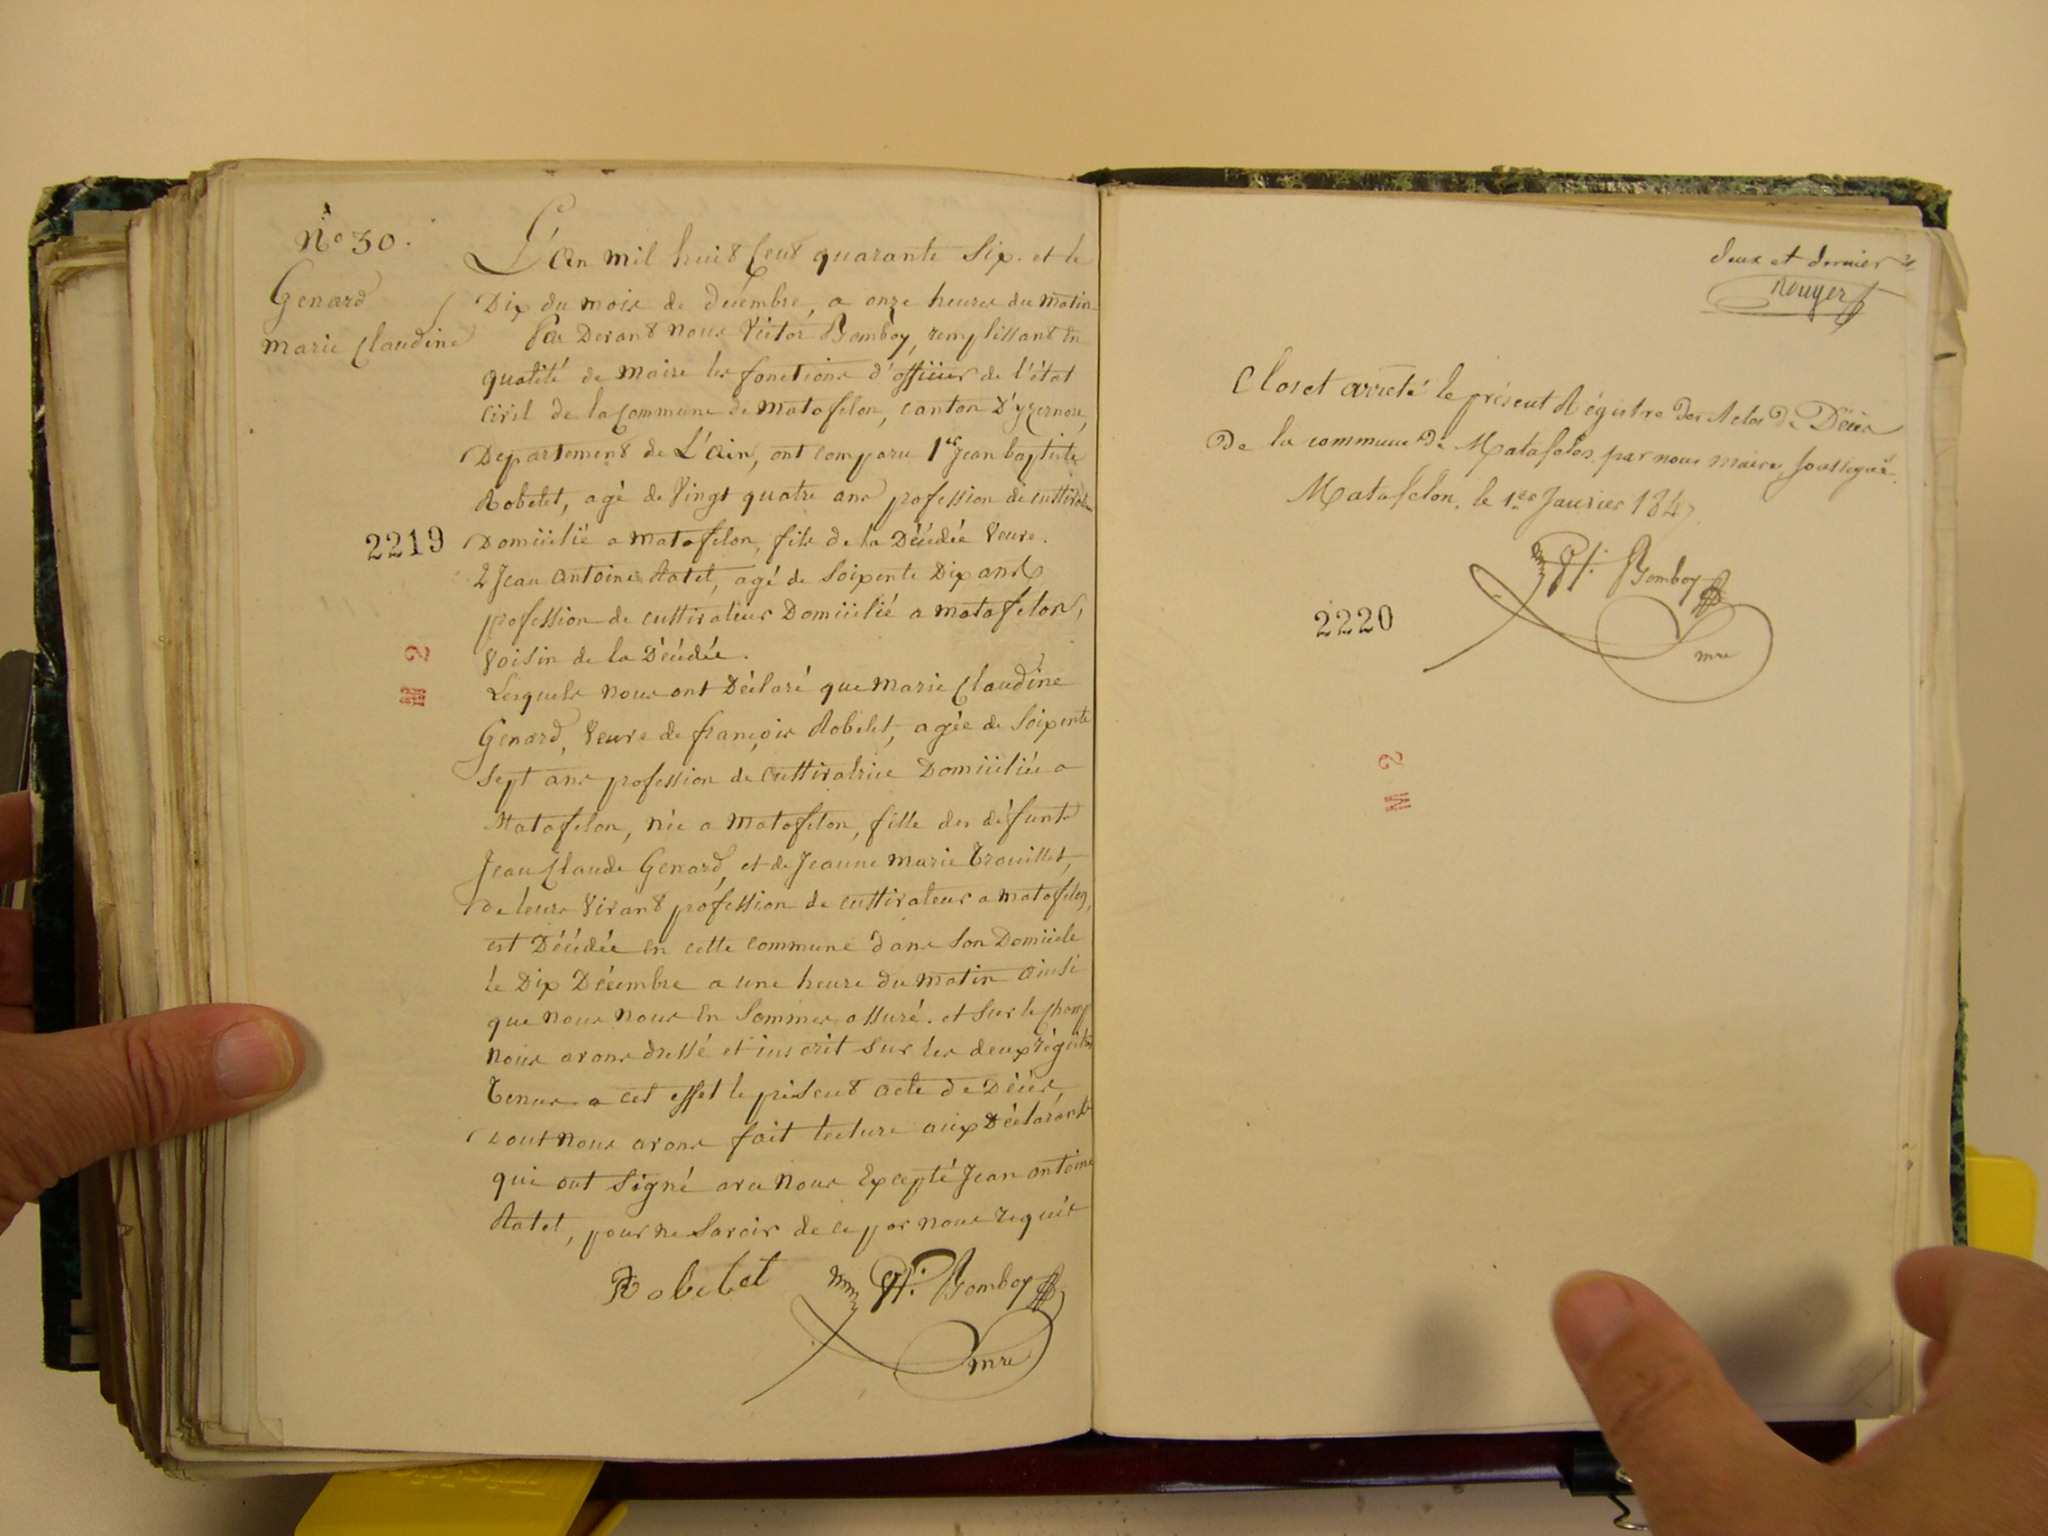 No 30.
Genard
Marie Claudine
2219
M 2
L'an mil huit Cent quarante Six. et le
Dix du mois de décembre, a onze heures du matin
Par Devant Nous Victor Gomboy, remplissant en
qualité de Maire les fonctions d'officier de l'état
civil de la Commune de Matafelon, canton D'yzernore,
Département de L'Ain, ont comparu 1er Jean baptiste
Robelet, agé de Vingt quatre ans profession de cultivateur
Domicilié a Matafelon, fils de la Décédée Veuve.
2 Jean Antoine Ratet, agé de Soixente Dix ans
profession de cultivateur Domicilié a Matafelon,
Voisin de la Décédée.
Lesquels nous ont Déclaré que Marie Claudine
Genard, Veuve de françois Robelet, agée de Soixente
Sept ans profession de cultivatrice Domiciliée a
Matafelon, née a Matafelon, fille des défunts
Jean Claude Genard, et de Jeanne Marie Trouillet,
de leurs Vivant profession de cultivateur a Matafelon,
est Décédée en cette commune dans Son Domicile
le Dix Décembre a une heure du matin ainsi
que nous nous En Sommes assuré. et Sur le champ
Nous avons dressé et inscrit Sur les deux régistres
Tenus a cet effet le présent acte de Décès,
Dont Nous avons fait lecture aux Déclarants
qui ont Signé avec Nous Excepté Jean antoine
Ratet, pour ne Savoir de ce par nous requis
Robelet
Vr. Gomboy
mre
deux et dernier
Rouyer
Clos et arreté le présent Régistre des Actes de Décès
De la commune de Matafelon par nous maire Soussigné.
Matafelon, le 1er Janvier 1847.
Vr. Gomboy
mre
2220
M 2